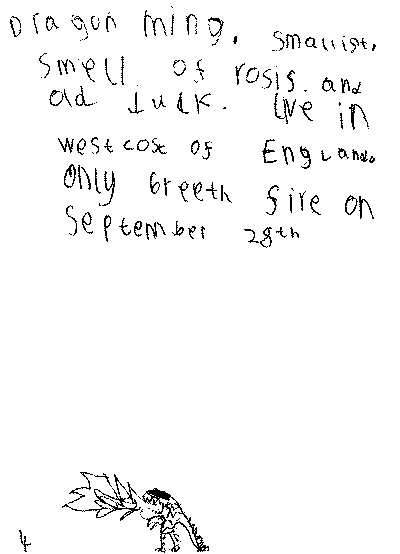 Dragon ming. smallist.
smell of rosis. and
old luck. live in
west cost of England.
only breeth fire on
september 28th
4